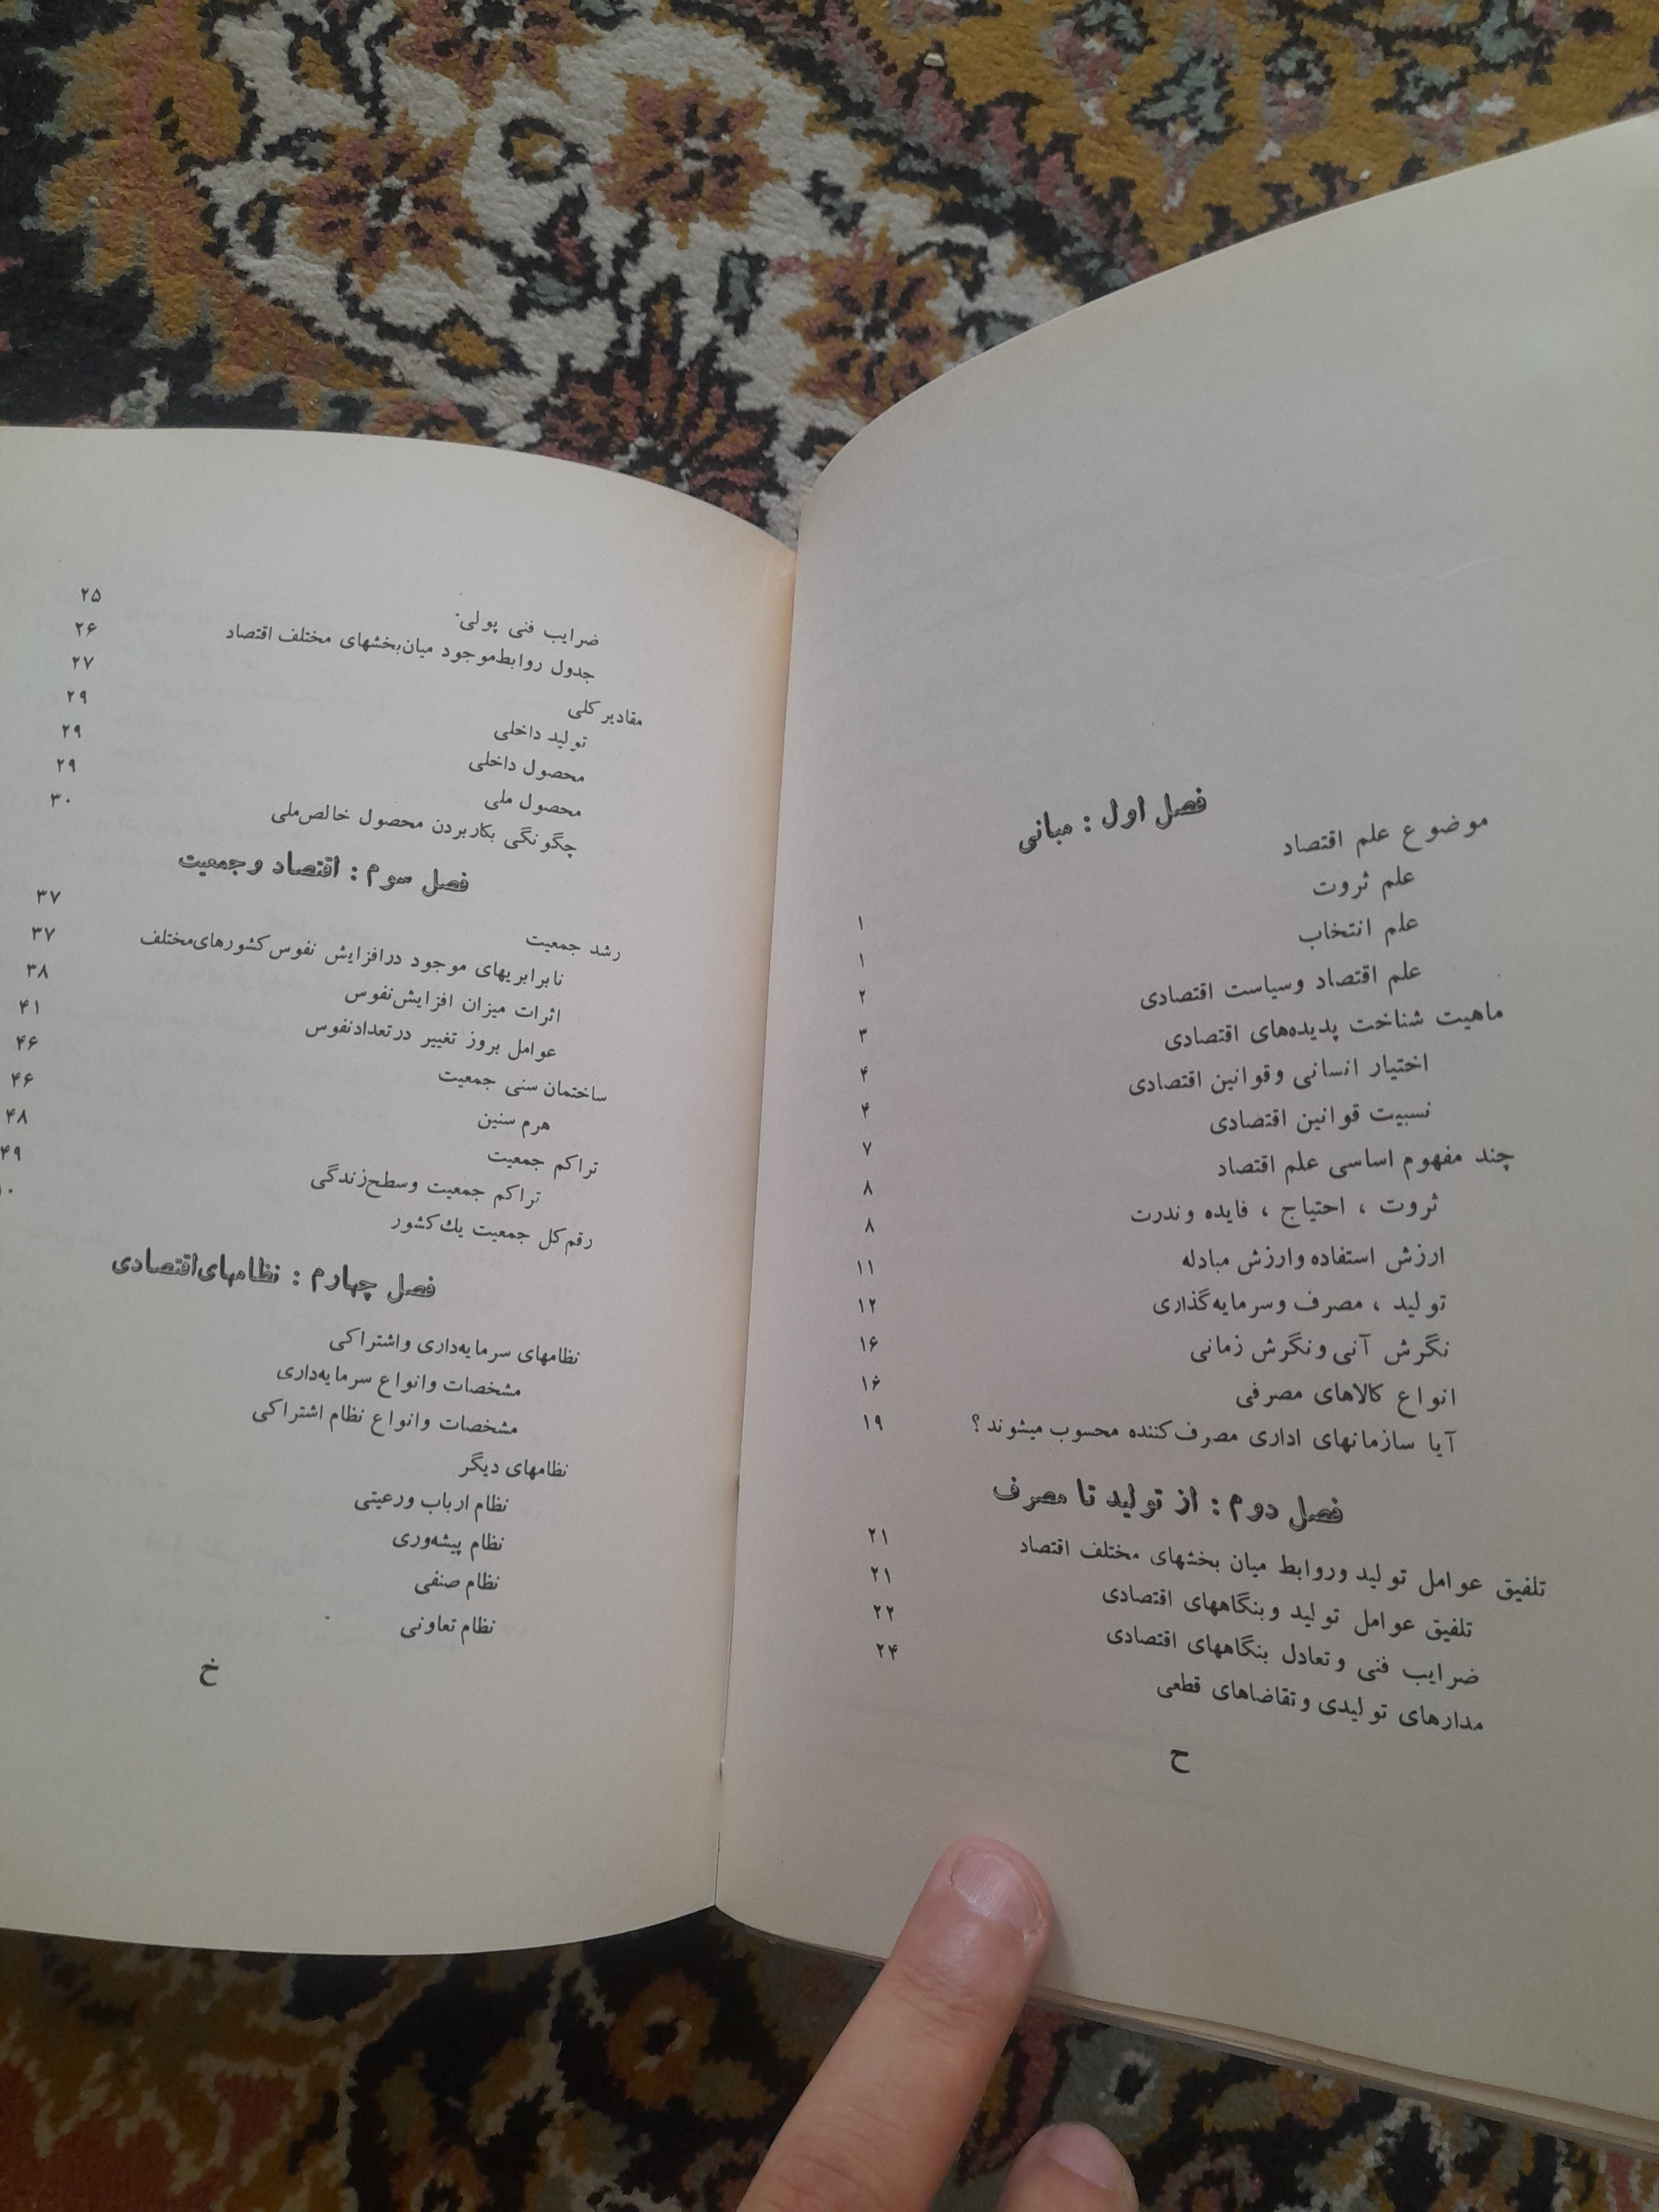 فصل اول : مبانی
موضوع علم اقتصاد ۱
علم ثروت ۱
علم انتخاب ۲
علم اقتصاد وسیاست اقتصادی ۳
ماهیت شناخت پدیده‌های اقتصادی ۴
اختیار انسانی وقوانین اقتصادی ۴
نسبیت قوانین اقتصادی ۷
چند مفهوم اساسی علم اقتصاد ۸
ثروت ، احتیاج ، فایده وندرت ۸
ارزش استفاده وارزش مبادله ۱۱
تولید ، مصرف وسرمایه‌گذاری ۱۲
نگرش آنی ونگرش زمانی ۱۶
انواع کالاهای مصرفی ۱۶
آیا سازمانهای اداری مصرف‌کننده محسوب میشوند ؟ ۱۹
فصل دوم : از تولید تا مصرف
تلفیق عوامل تولید وروابط میان بخشهای مختلف اقتصاد ۲۱
تلفیق عوامل تولید وبنگاههای اقتصادی ۲۱
ضرایب فنی وتعادل بنگاههای اقتصادی ۲۲
مدارهای تولیدی وتقاضاهای قطعی ۲۴
ح
ضرایب فنی پولی ۲۵
جدول روابط‌موجود میان‌بخشهای مختلف اقتصاد ۲۶
مقادیر کلی ۲۷
تولید داخلی ۲۹
محصول داخلی ۲۹
محصول ملی ۲۹
چگونگی بکاربردن محصول خالص‌ملی ۳۰
فصل سوم : اقتصاد وجمعیت
رشد جمعیت ۳۷
نابرابریهای موجود درافزایش نفوس‌کشورهای‌مختلف ۳۷
اثرات میزان افزایش‌نفوس ۳۸
عوامل بروز تغییر درتعدادنفوس ۴۱
ساختمان سنی جمعیت ۴۶
هرم سنین ۴۶
تراکم جمعیت ۴۸
تراکم جمعیت وسطح‌زندگی ۴۹
رقم‌کل جمعیت یك‌کشور
فصل چهارم : نظامهای‌اقتصادی
نظامهای سرمایه‌داری واشتراکی
مشخصات وانواع سرمایه‌داری
مشخصات وانواع نظام اشتراکی
نظامهای دیگر
نظام ارباب ورعیتی
نظام پیشه‌وری
نظام صنفی
نظام تعاونی
خ